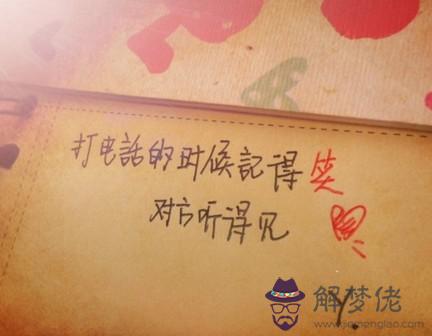 打电話的时候記得笑
对方听得见
解梦佬
www.jiemenglao.com